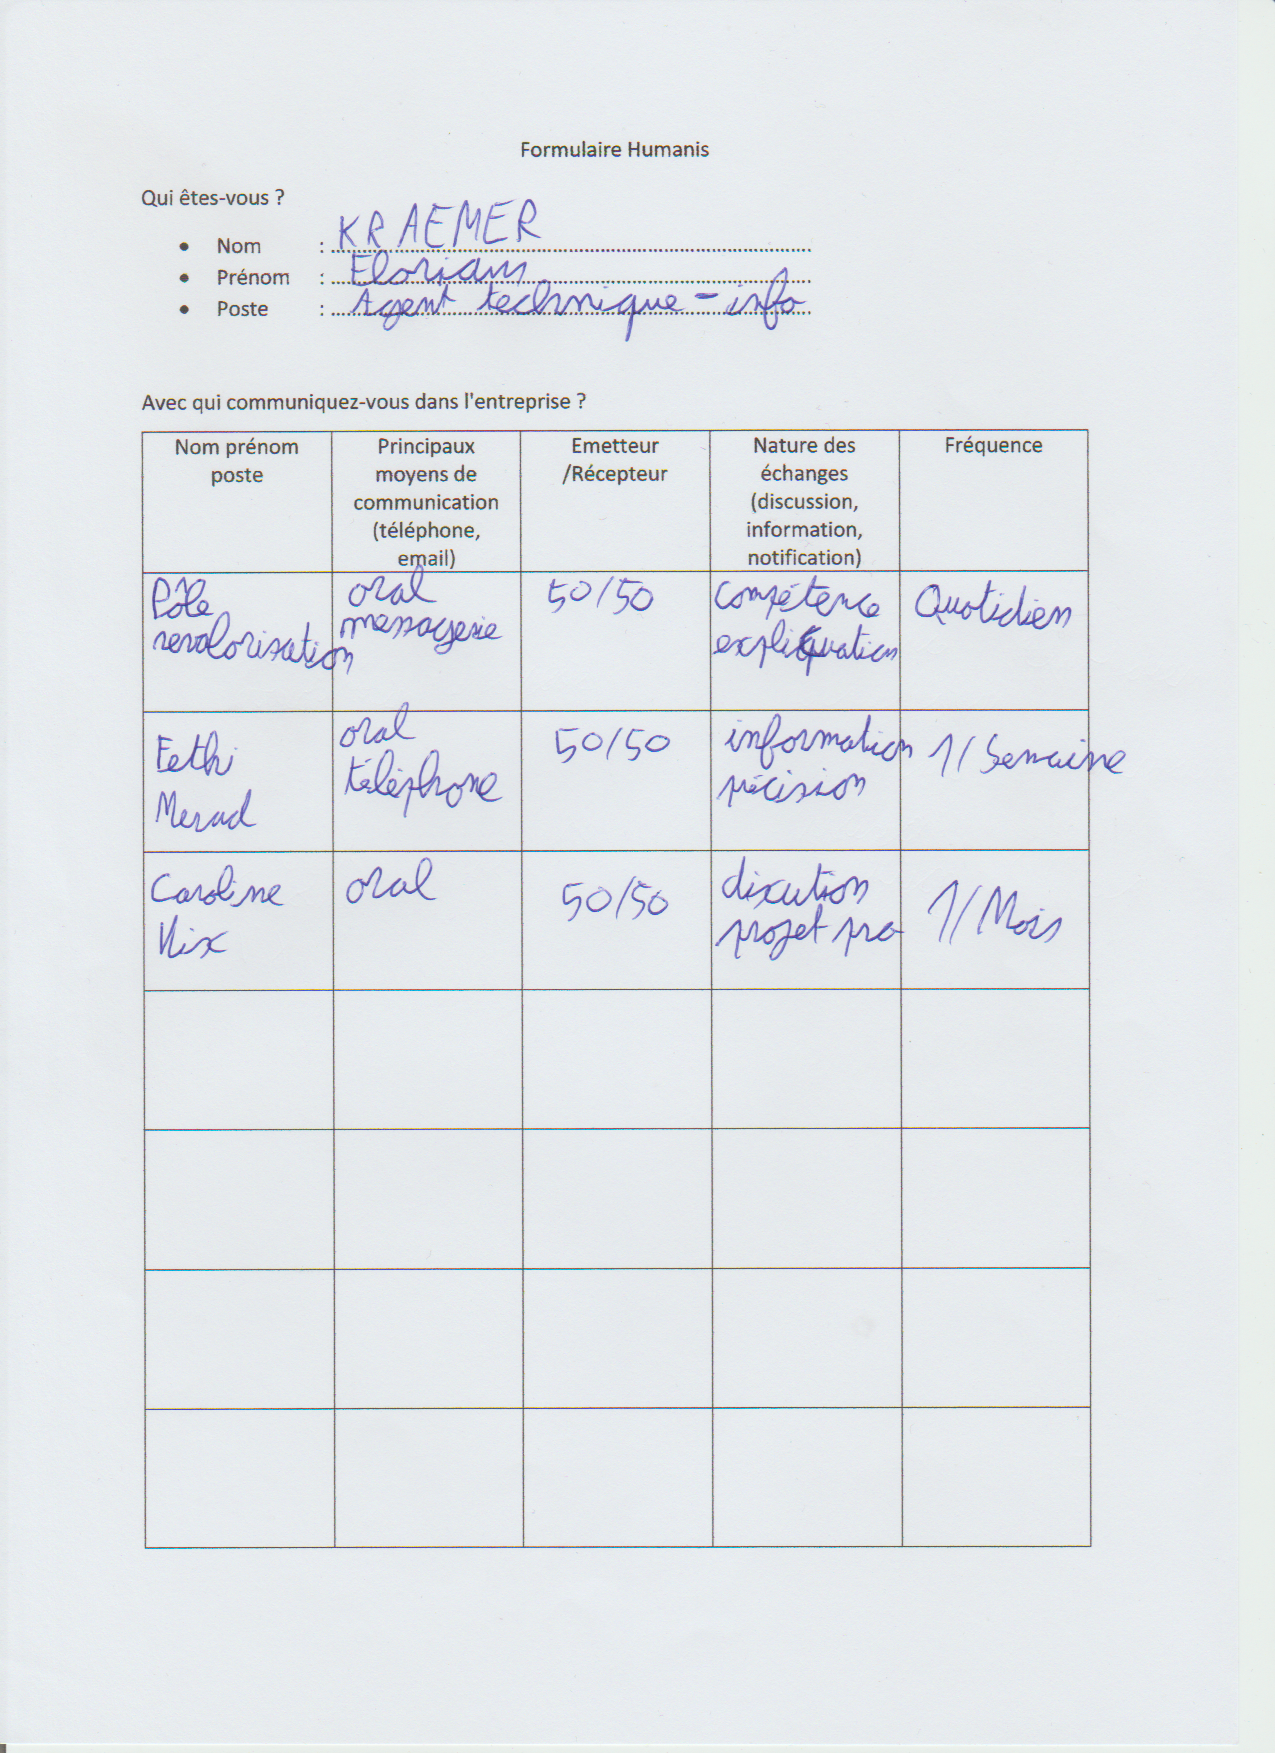 Formulaire Humanis
Qui êtes-vous ?
• Nom : KRAEMER
• Prénom : Florian
• Poste : Agent technique - info
Avec qui communiquez-vous dans l'entreprise ?
Nom prénom
poste
Principaux
moyens de
communication
(téléphone,
email)
Emetteur
/Récepteur
Nature des
échanges
(discussion,
information,
notification)
Fréquence
Pôle
revalorisation
oral
messagerie
50/50
compétence
expliquation
Quotidien
Fethi
Merad
oral
téléphone
50/50
information
précision
1/Semaine
Caroline
oral
50/50
discution
projet pro
1/Mois